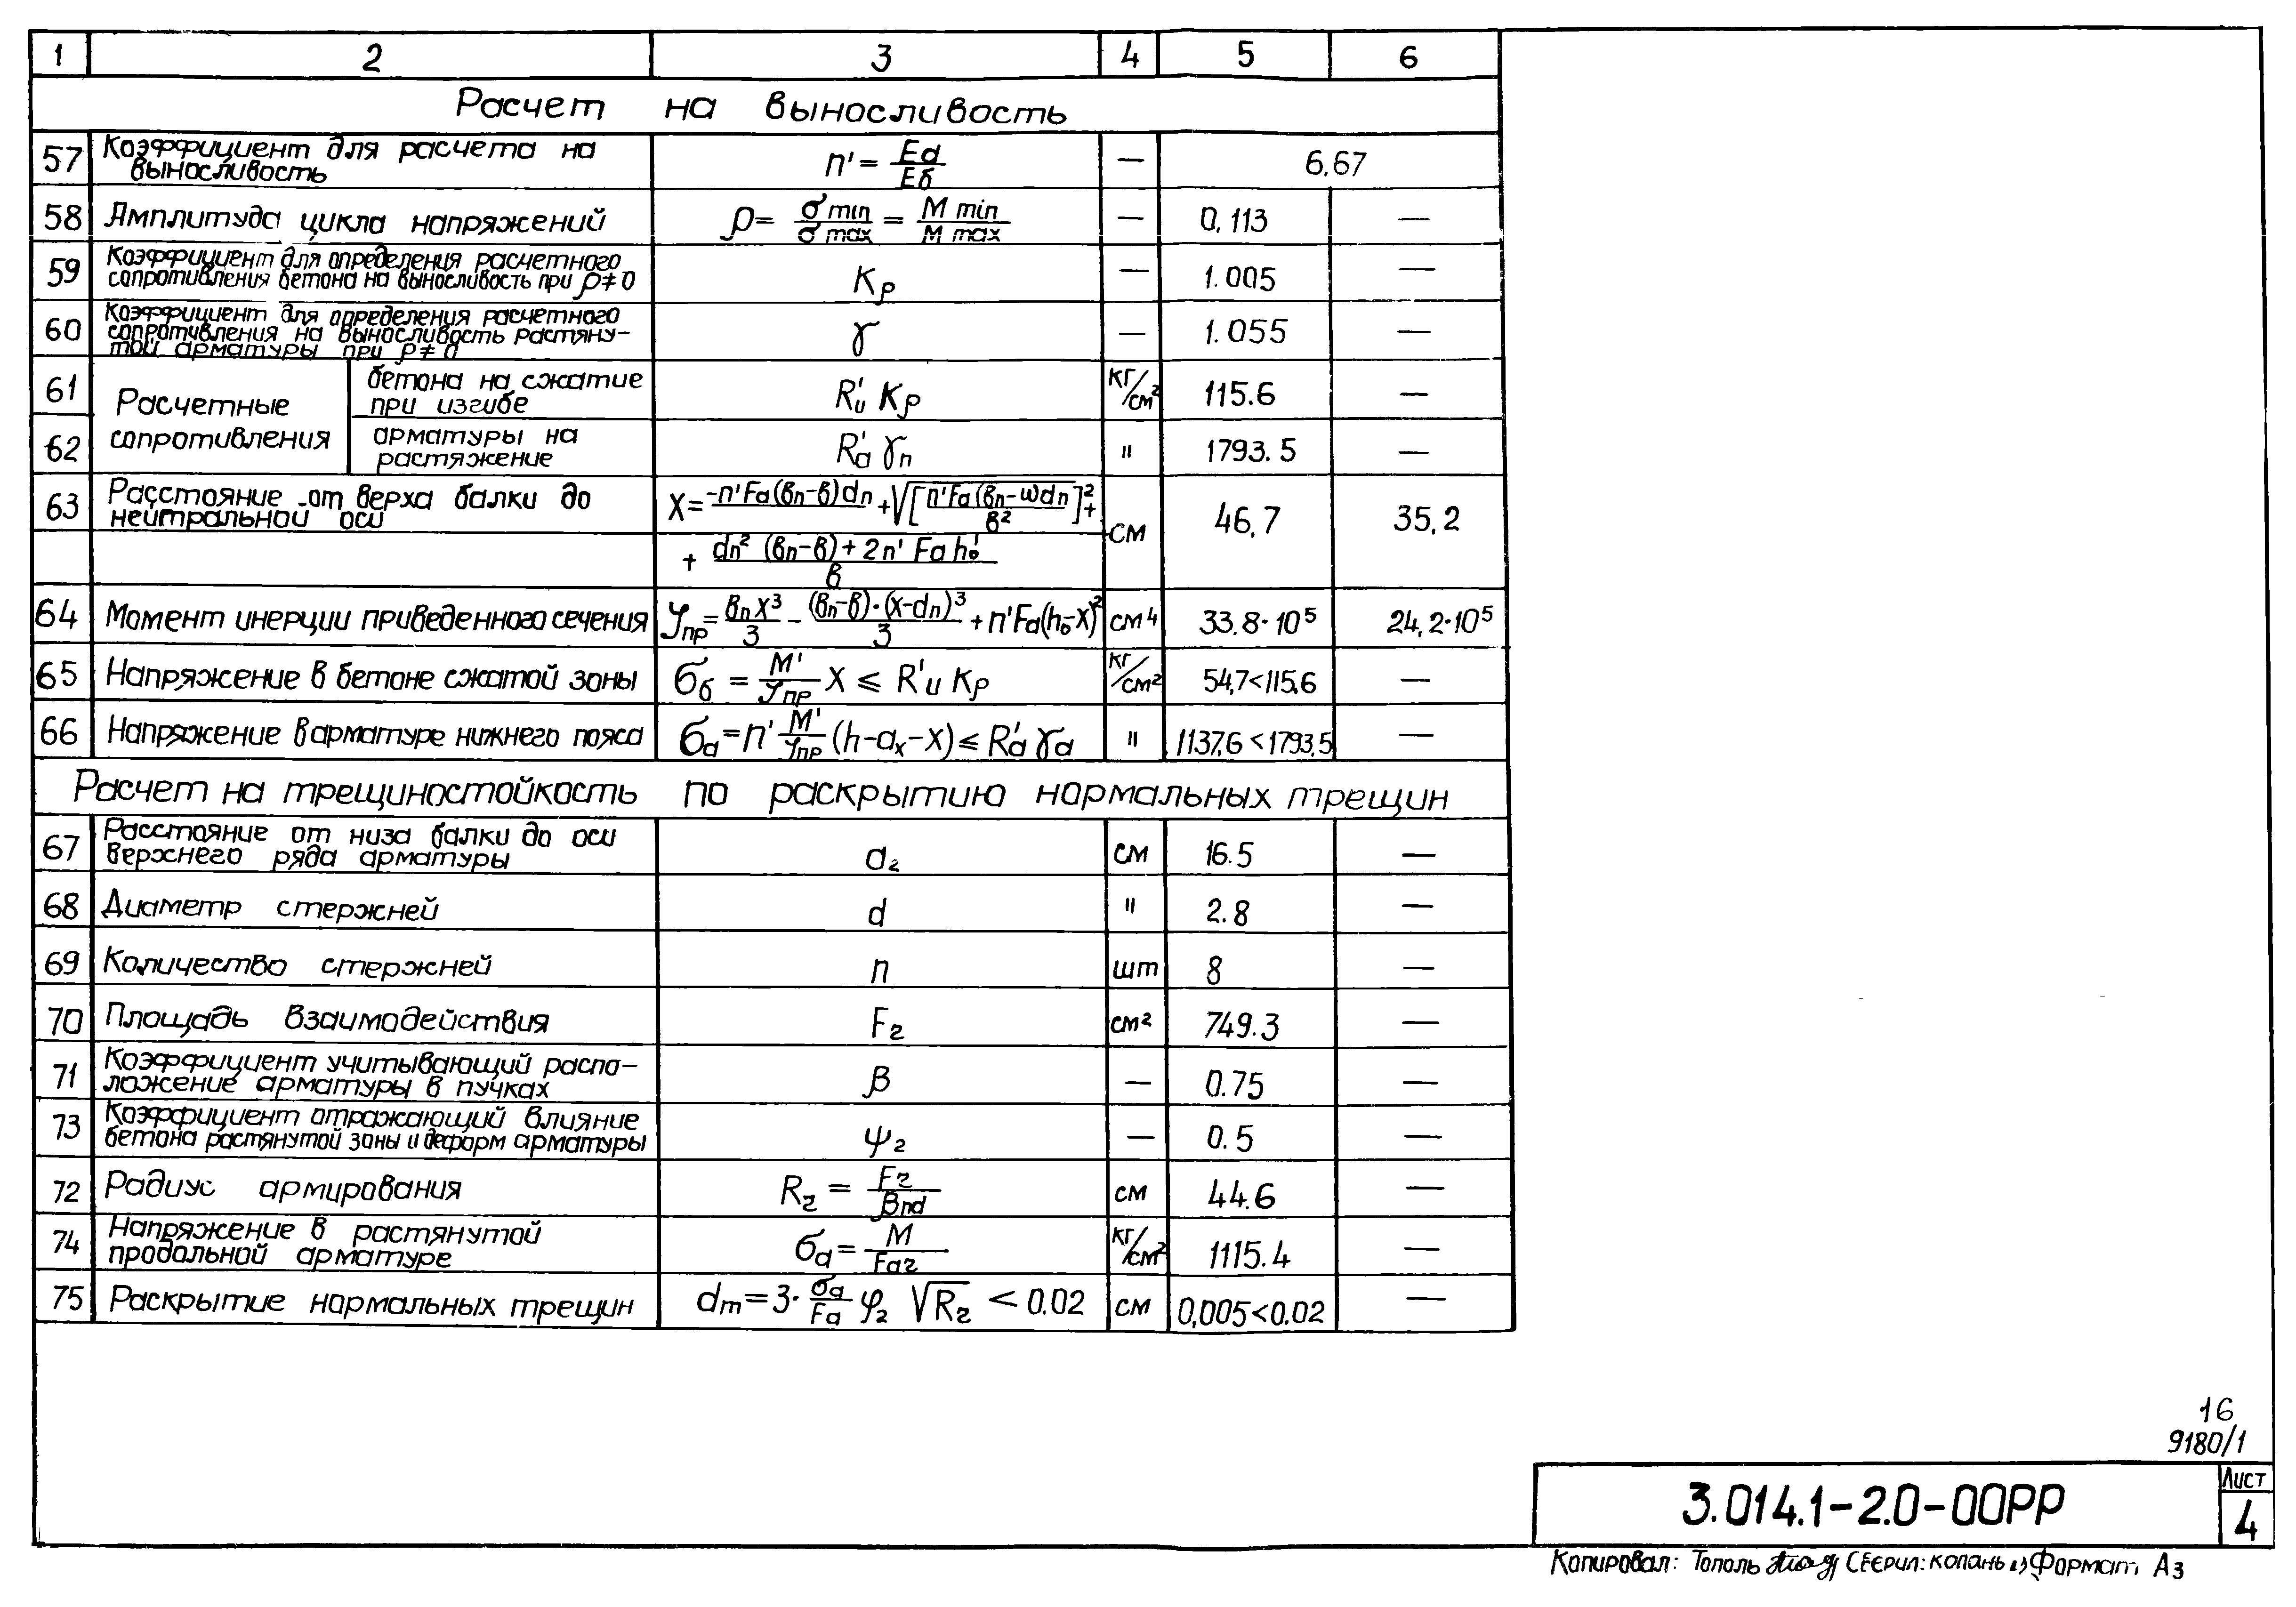 1 2 3 4 5 6
Расчет на выносливость
57 Коэффициент для расчета на
выносливость n' = Ea/Eб — 6,67
58 Амплитуда цикла напряжений ρ = σ min/σ max = M min/M max — 0,113 —
59 Коэффициент для определения расчетного
сопротивления бетона на выносливость при ρ≠0 Kρ — 1.005 —
60 Коэффициент для определения расчетного
сопротивления на выносливость растяну-
той арматуры при ρ≠0 γ — 1.055 —
Расчетные
сопротивления
61 бетона на сжатие
при изгибе R'и Kρ кг/см² 115.6 —
62 арматуры на
растяжение R'a γn " 1793.5 —
63 Расстояние от верха балки до
нейтральной оси X = -n'Fa(вn-в)dn + √[n'Fa(вn-w)dn/в²]² +
+ dn² (вn-в) + 2n' Fa h₀'/в см 46,7 35,2
64 Момент инерции приведенного сечения Jпр = вn X³/3 - (вn-в)·(x-dn)³/3 + n'Fa(h₀-x)² см⁴ 33.8·10⁵ 24,2·10⁵
65 Напряжение в бетоне сжатой зоны σб = M'/Jпр X ≤ R'и Kρ кг/см² 54,7<115.6 —
66 Напряжение в арматуре нижнего пояса σa = n' M'/Jпр (h-ax-x) ≤ R'a γa " 1137,6<1793,5 —
Расчет на трещиностойкость по раскрытию нормальных трещин
67 Расстояние от низа балки до оси
верхнего ряда арматуры a₂ см 16.5 —
68 Диаметр стержней d " 2.8 —
69 Количество стержней n шт 8 —
70 Площадь взаимодействия F₂ см² 749.3 —
71 Коэффициент учитывающий распо-
ложение арматуры в пучках β — 0.75 —
73 Коэффициент отражающий влияние
бетона растянутой зоны и деформ арматуры ψ₂ — 0.5 —
72 Радиус армирования R₂ = F₂/βnd см 44.6 —
74 Напряжение в растянутой
продольной арматуре σa = M/Fa₂ кг/см² 1115.4 —
75 Раскрытие нормальных трещин dm = 3· σa/Fa φ₂ √R₂ < 0.02 см 0,005<0.02 —
16
9180/1
3.014.1-2.0-00РР
Лист
4
Копировал: Тополь Сверил: копань Формат А3